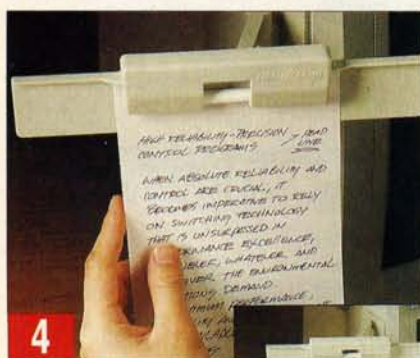 HIGH RELIABILITY-PRECISION / HEAD LINE
CONTROL PROGRAMS
WHEN ABSOLUTE RELIABILITY AND
CONTROL ARE CRUCIAL, IT
BECOMES IMPERATIVE TO RELY
ON SWITCHING TECHNOLOGY
THAT IS UNSURPASSED IN
EXCELLENCE,
WHATEVER AND
THE ENVIRONMENTAL
DEMAND.
PERFORMANCE,
4